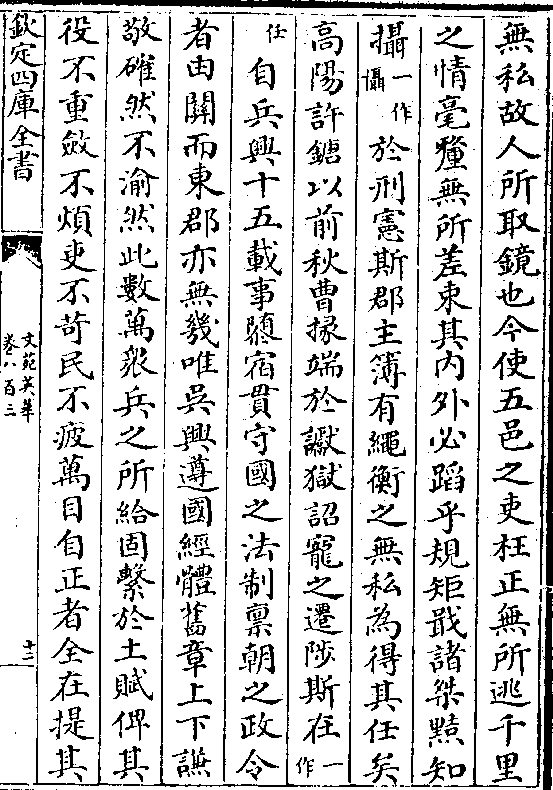 無私故人所取鏡也今使五邑之吏枉正無所逃千里
之情毫釐無所差束其内外必蹈乎規矩戢諸桀黠知
攝一作懾於刑憲斯郡主簿有繩衡之無私為得其任矣
高陽許鍇以前秋曹掾端於讞獄詔寵之遷陟斯在一作
任自兵興十五載事隳宿貫守國之法制禀朝之政令
者由關而東郡亦無幾唯吳興遵國經體舊章上下謙
敬確然不渝然此數萬衆兵之所給固繫於土賦俾其
役不重斂不煩吏不苛民不疲萬目自正者全在提其
欽定四庫全書
文苑英華
卷八百三
十二